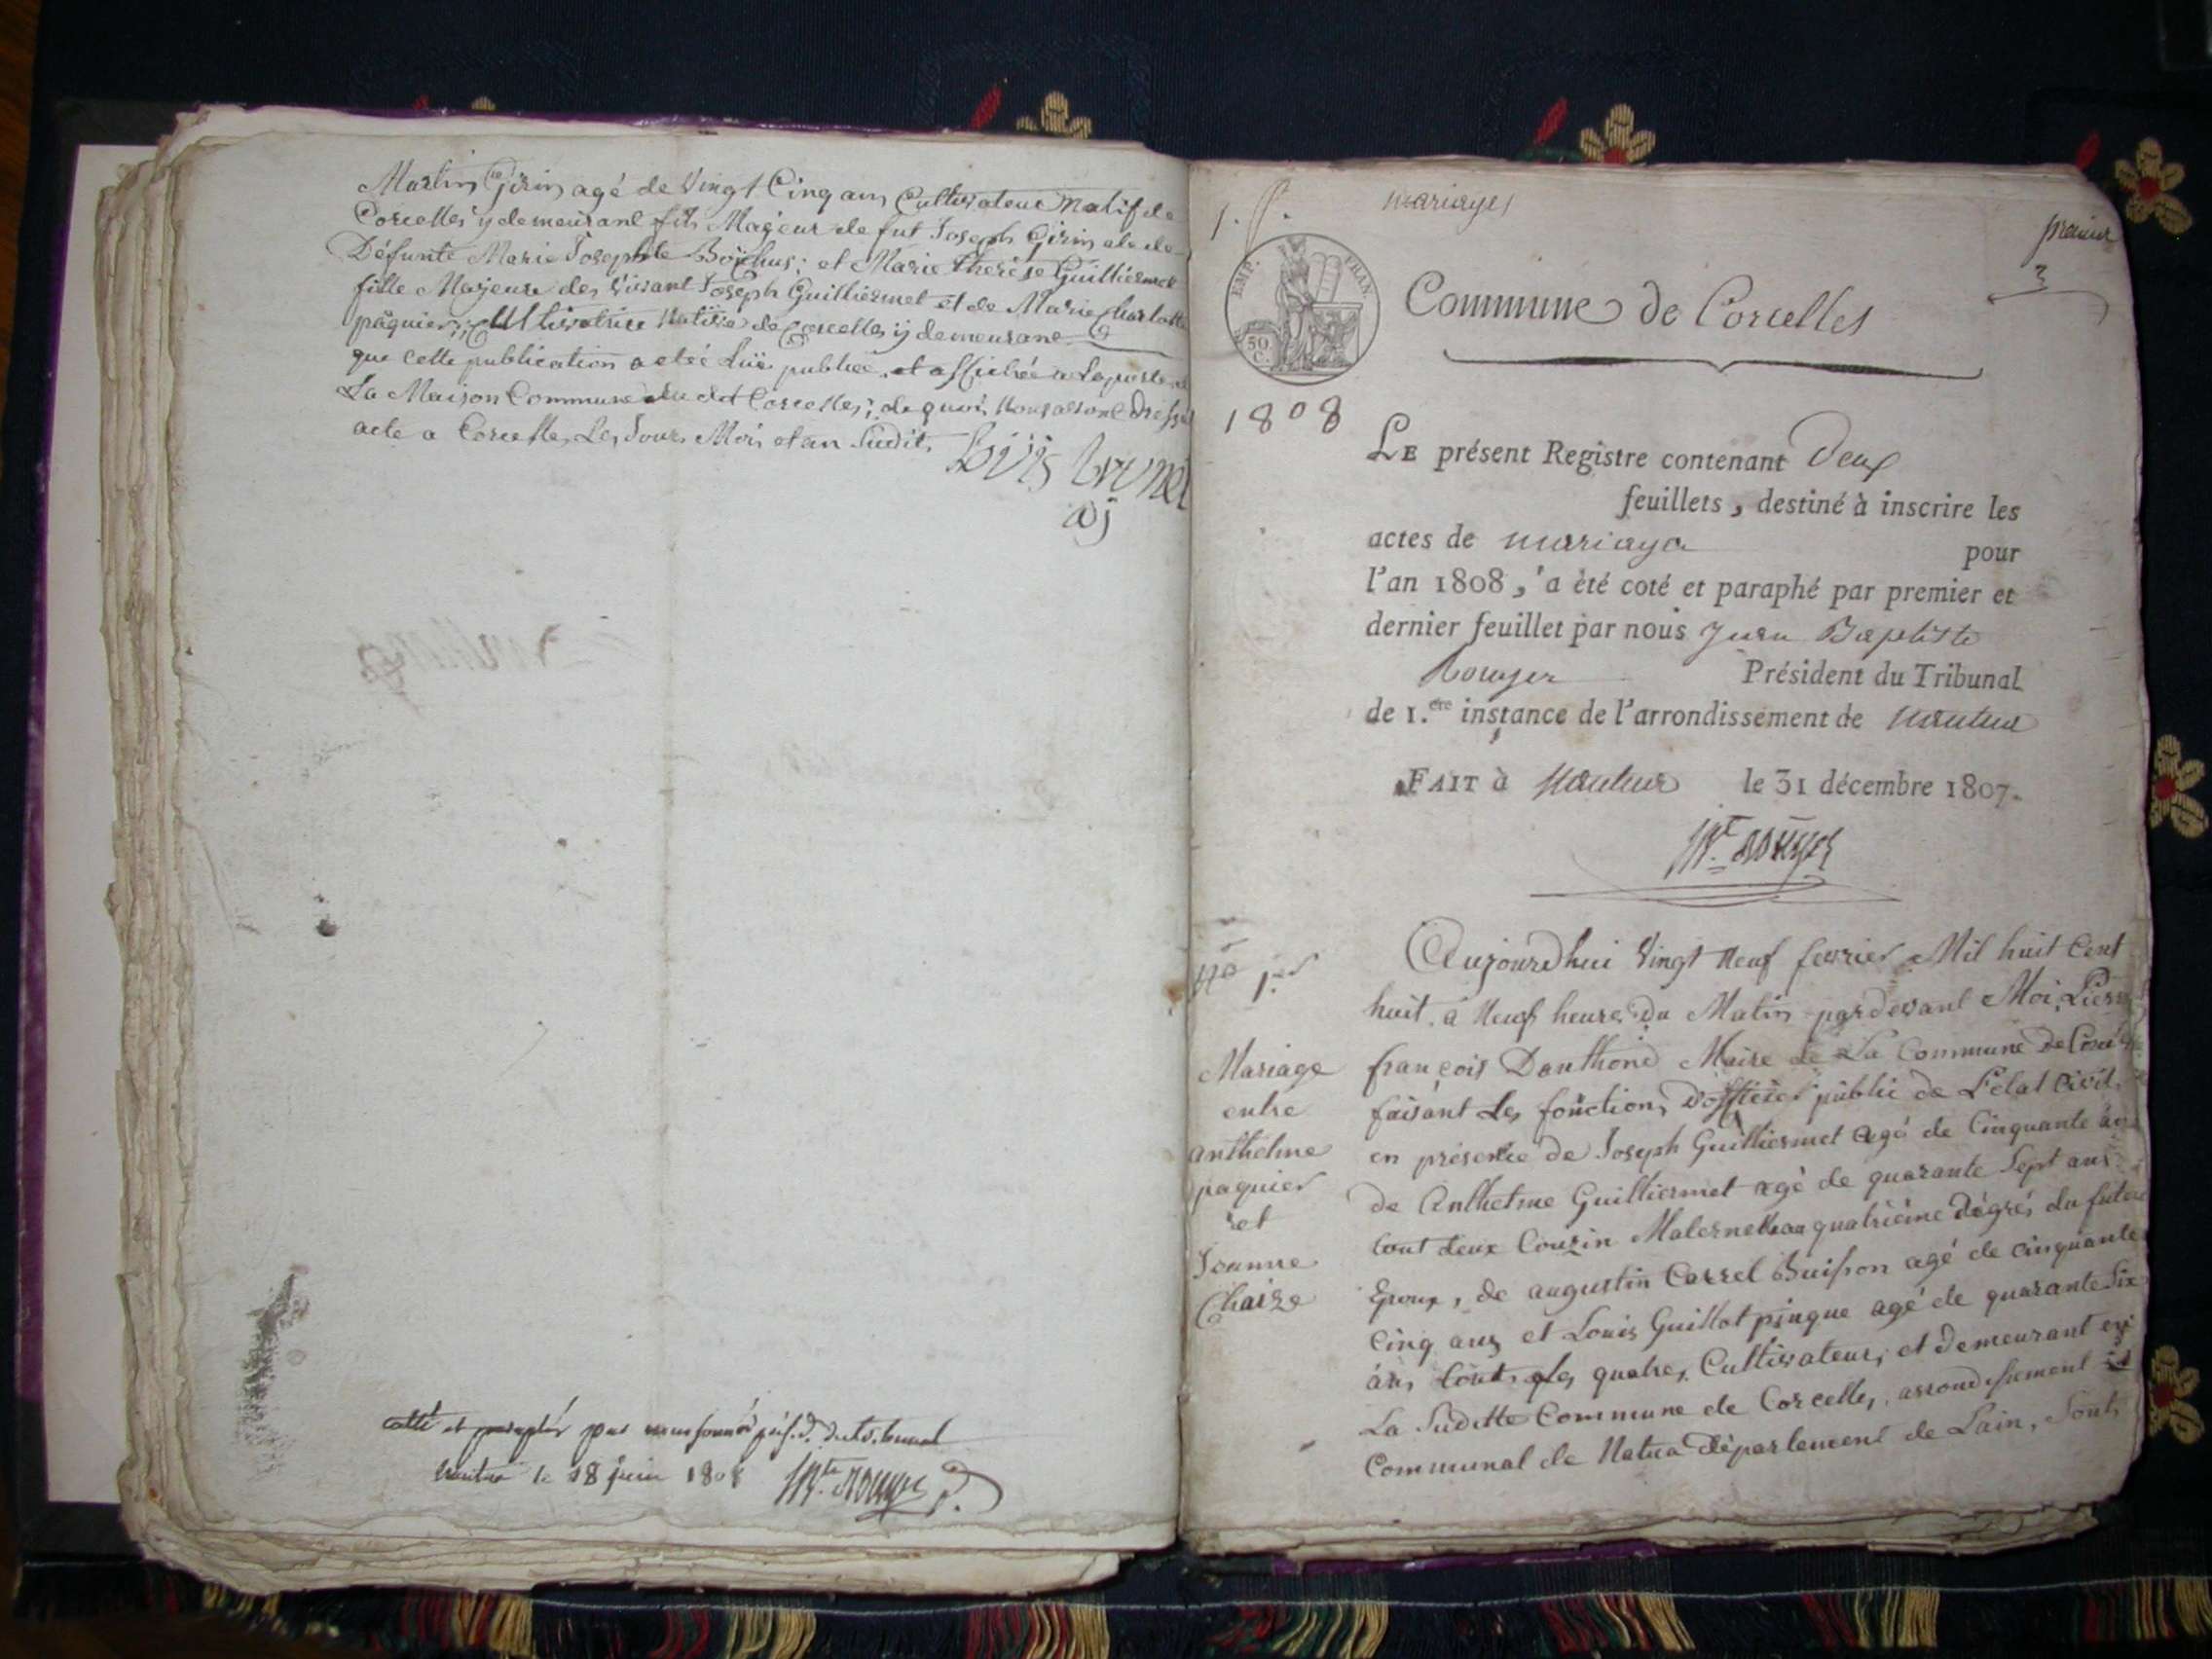 Martin Girin agé de Vingt Cinq ans Cultivateur Natif de
Corcelles y demeurant fils Majeur de fut Joseph Girin et de
Défunte Marie Josephte ; et Marie therèse Guilliermet
fille Majeure des Vivant Joseph Guilliermet et de Marie Charlotte
paquier, Cultivatrice Native de Corcelles y demeurant
que cette publication a eté Lüe publiée, et affichée a La porte de
La Maison Commune du dit Corcelles; de quoi Nous avons Dressé
acte a Corcelles Les Jour, Mois et an Sudit,
Loüis brunet
adj
cotté et paraphé par nous président du tribunal
Nantua le 18 juin 1808 JBte. Rouyer P.
1. f. mariages
premier
3
EMP. FRAN.
50 C.
Commune de Corcelles
1808
LE présent Registre contenant Deux
feuillets, destiné à inscrire les
actes de mariage pour
l'an 1808, a été coté et paraphé par premier et
dernier feuillet par nous Jean Baptiste
Rouyer Président du Tribunal
de 1.ere instance de l'arrondissement de Nantua
FAIT à Nantua le 31 décembre 1807.
JBte. Rouyer
No 1er
Mariage
entre
anthelme
paquier
et
Jeanne
Chaize
Aujourdhui Vingt Neuf fevrier Mil huit Cent
huit, à Neuf heure Du Matin pardevant Moi, Pierre
françois Danthond Maire de La Commune De Corcelles
faisant Les fonctions D'officier public de L'état Civil,
en présence de Joseph Guilliermet agé de Cinquante ans
de Anthelme Guilliermet agé de quarante Sept ans
tout deux Cousin Maternel au quatrième dégrés du futur
Epoux, de augustin Carrel Buisson agé de cinquante
Cinq ans et Louis Guillot pingue agé de quarante Six
ans touts Les quatres Cultivateurs, et Demeurant en
La Suditte Commune de Corcelles, arrondissement
Communal de Natua département de Lain, Sont